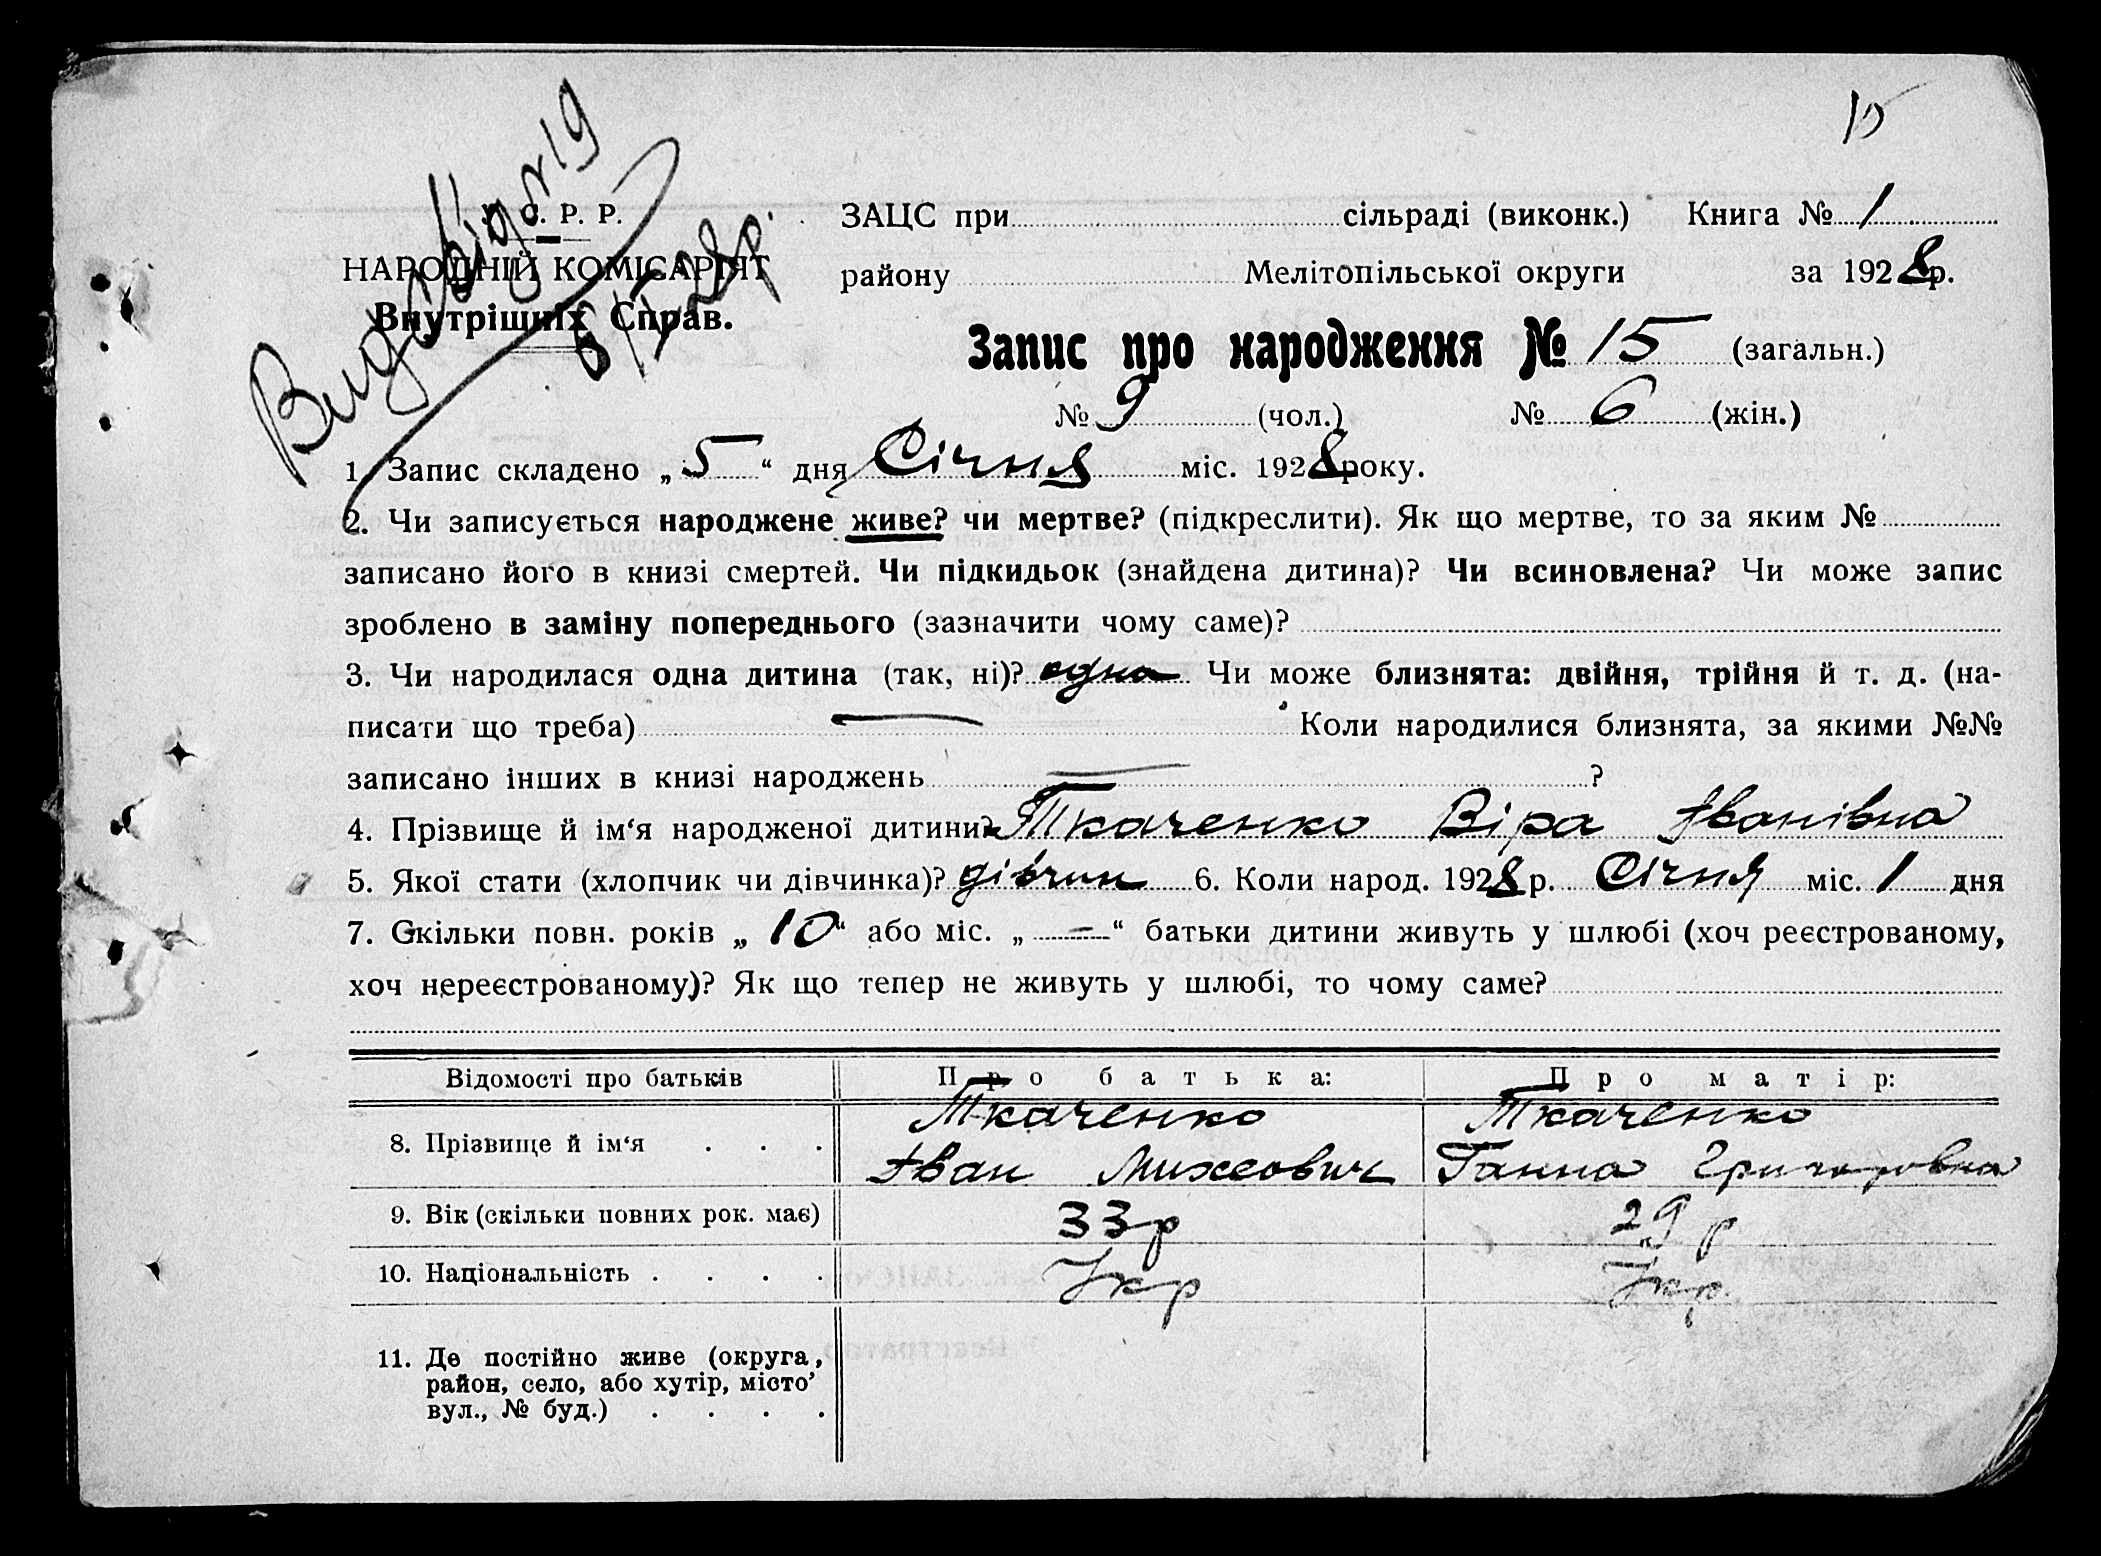 15
У. С. Р. Р.
НАРОДНІЙ КОМІСАРІЯТ
Внутрішніх Справ.
ЗАЦС при сільраді (виконк.) Книга № 1
району Мелітопільської округи за 1928 р.
Запис про народження № 15 (загальн.)
№ 9 (чол.) № 6 (жін.)
1. Запис складено „ 5 “ дня Січня міс. 1928 року.
2. Чи записується народжене живе? чи мертве? (підкреслити). Як що мертве, то за яким №
записано його в книзі смертей. Чи підкидьок (знайдена дитина)? Чи всиновлена? Чи може запис
зроблено в заміну попереднього (зазначити чому саме)?
3. Чи народилася одна дитина (так, ні)? одна Чи може близнята: двійня, трійня й т. д. (на-
писати що треба) — Коли народилися близнята, за якими №№
записано інших в книзі народжень — ?
4. Прізвище й ім‘я народженої дитини? Ткаченко Віра Іванівна
5. Якої стати (хлопчик чи дівчинка)? дівчин 6. Коли народ. 1928 р. Січня міс. 1 дня
7. Скільки повн. років „ 10 “ або міс. „ — “ батьки дитини живуть у шлюбі (хоч реєстрованому,
хоч нереєстрованому)? Як що тепер не живуть у шлюбі, то чому саме?
Відомості про батьків Про батька: Про матір:
8. Прізвище й ім‘я . . . Ткаченко Іван Михеович Ткаченко Ганна Григоровна
9. Вік (скільки повних рок. має) 33 р 29 р
10. Національність . . . . Укр Укр.
11. Де постійно живе (округа,
район, село, або хутір, місто’
вул., № буд.) . . . .